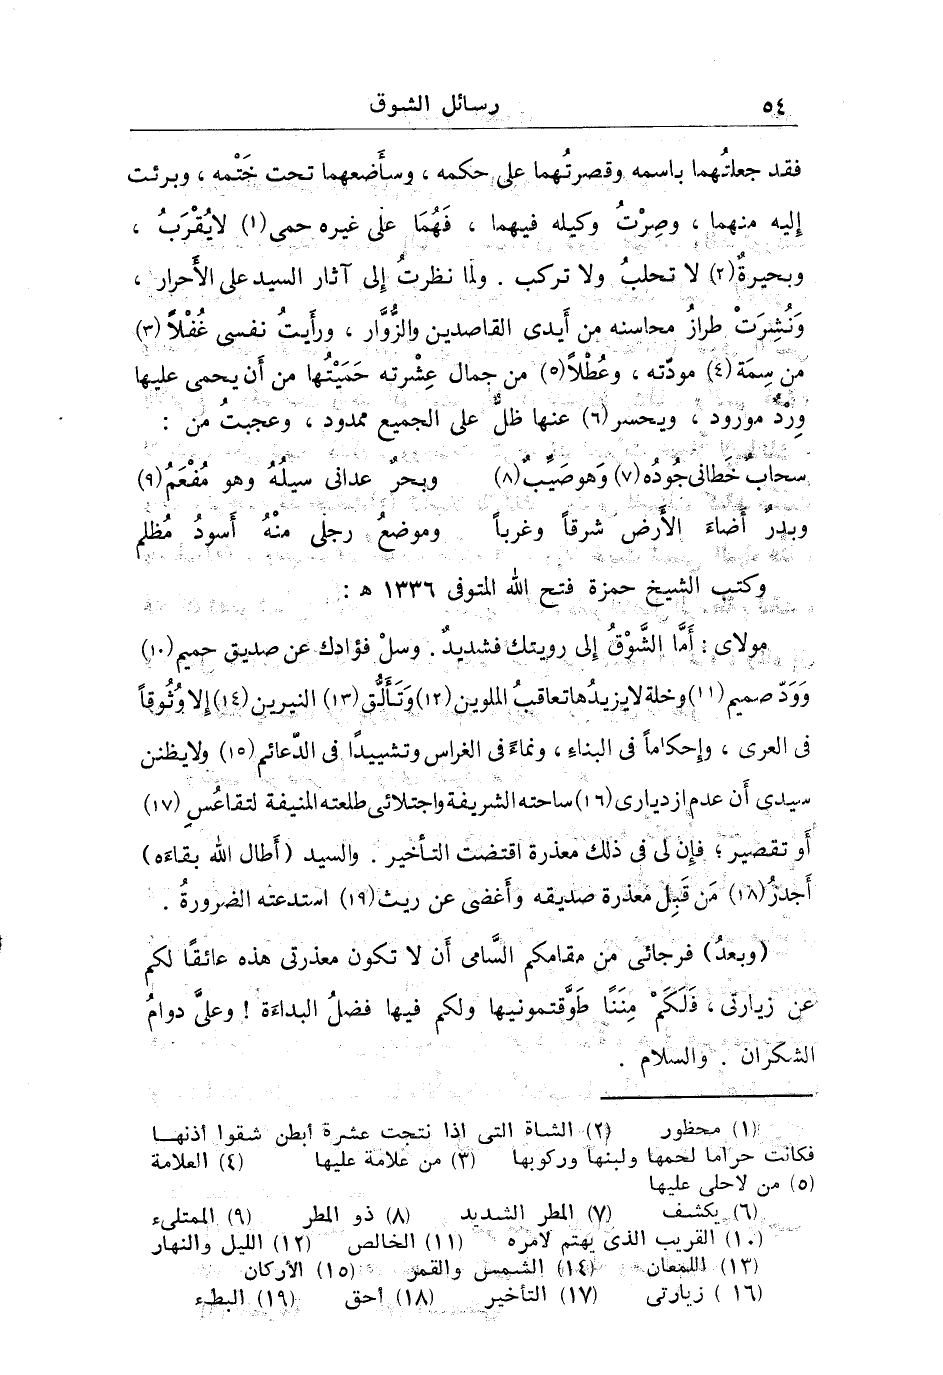 ٥٤ رسائل الشوق
فقد جعلتُهما باسمه وقصرتُهما على حكمه ، وسأَضعهما تحت خَتْمه ، وبرئت
إليه منهما ، وصِرْتُ وكيله فيهما ، فَهُمَا على غيره حمى(١) لايُقْرَبُ ،
وبحيرةٌ(٢) لا تحلبُ ولا تركب . ولما نظرتُ إلى آثار السيد على الأَحرار ،
وَنُشِرَتْ طرازُ محاسنه من أَيدى القاصدين والزُّوَّار ، ورأَيتُ نفسى غُفْلاً(٣)
من سِمَة(٤) مودّته ، وعُطْلاً(٥) من جمال عِشْرته حَمَيْتُها من أَن يحمى عليها
وِرْدٌ مورود ، ويحسر(٦) عنها ظلٌّ على الجميع ممدود ، وعجبتُ من :
سحابٌ خَطانى جُودُه(٧) وَهو صَيِّبٌ(٨) وبحرٌ عدانى سيلُهُ وهو مُفْعَمُ(٩)
وبدرٌ أَضاءَ الأَرض شرقاً وغرباً وموضعُ رجلى منْهُ أَسودُ مُظلم
وكتب الشيخ حمزة فتح الله المتوفى ١٣٣٦ هـ :
مولاى : أَمَّا الشَّوْقُ إلى رويتك فشديدٌ . وسلْ فؤادك عن صديق حميم(١٠)
وَوَدّ صميم(١١) وخلة لايزيدُها تعاقبُ الملوين(١٢) وَتَأَلُّق(١٣) النيرين(١٤) إلا وُثُوقاً
فى العرى ، وإحكاماً فى البناء ، ونماءً فى الغراس وتشييدًا فى الدّعائم(١٥) ولايظنن
سيدى أَن عدم ازديارى(١٦) ساحته الشريفة واجتلائى طلعته المنيفة لتقاعُسٍ (١٧)
أَو تقصير ؛ فإن لى فى ذلك معذرة اقتضت التأخير . والسيد (أَطال الله بقاءَه)
أَجدرُ(١٨) مَن قَبِل معذرة صديقه وأَغضى عن ريث(١٩) استدعته الضرورةُ .
(وبعدُ) فرجائى من مقامكم السَّامى أَن لا تكون معذرتى هذه عائقًا لكم
عن زيارتى ، فَلَكَمْ مِنَنًا طَوَّقتمونيها ولكم فيها فضلُ البداءَة ! وعلىَّ دوامُ
الشكران . والسلام .
(١) محظور (٢) الشاة التى اذا نتجت عشرة أبطن شقوا أذنها
فكانت حراما لحمها ولبنها وركوبها (٣) من علامة عليها (٤) العلامة
(٥) من لاحلى عليها
(٦) يكشف (٧) المطر الشديد (٨) ذو المطر (٩) الممتلىء
(١٠) القريب الذى يهتم لامره (١١) الخالص (١٢) الليل والنهار
(١٣) اللمعان (١٤) الشمس والقمر (١٥) الأركان
(١٦ ) زيارتى (١٧) التأخير (١٨) أحق (١٩) البطء